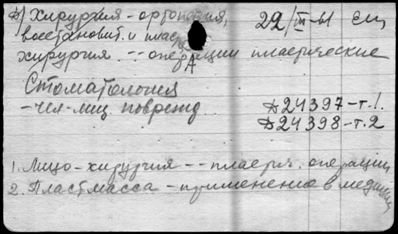 в) Хирургия - ортопедия, 22/III-61
восстановит. и пласт.
хирургия -- операции пластические
Стоматология
-чел-лиц поврежд Д24397-т.1.
Д24398-т.2
1. Лицо-хирургия -- пластич. операции
2. Пластмасса - применение в медицине